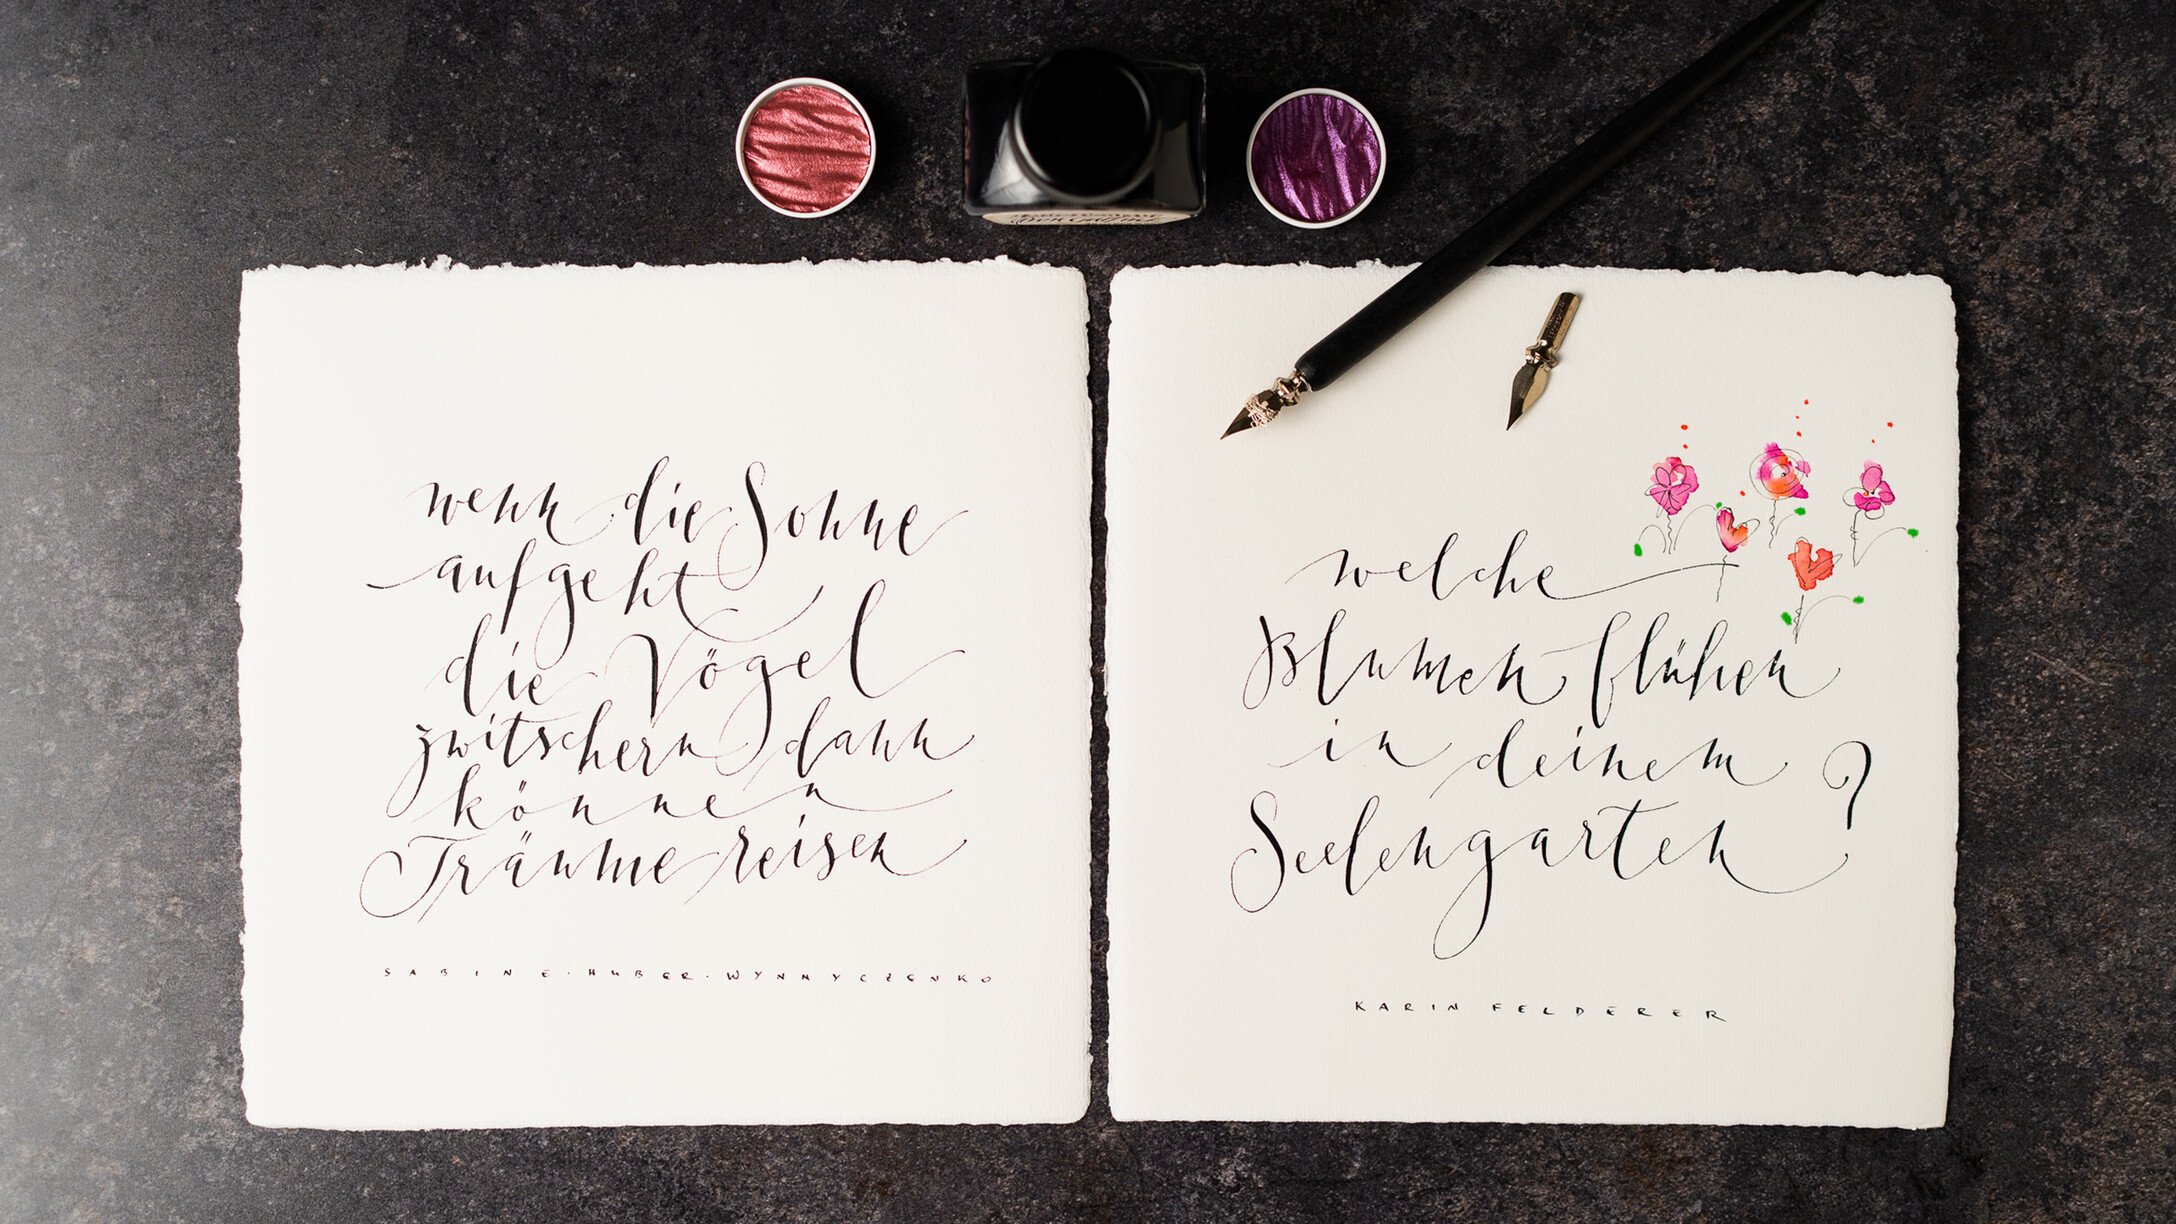 wenn die Sonne
aufgeht
die Vögel
zwitschern dann
können
Träume reisen
SABINE·HUBER·WYNNYCZENKO
welche
Blumen blühen
in deinem
Seelengarten?
KARIN FELDERER